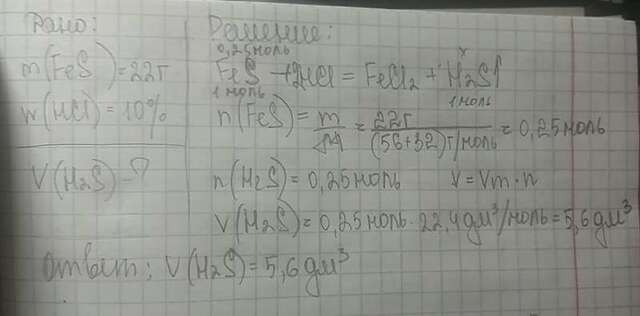 Дано:
m(FeS)=22г
w(HCl)=10%
V(H₂S)-?
Решение:
0,25моль x
FeS+2HCl=FeCl₂+H₂S↑
1моль 1моль
n(FeS)=m/M=22г/(56+32)г/моль=0,25моль
n(H₂S)=0,25моль V=Vm·n
V(H₂S)=0,25моль·22,4дм³/моль=5,6дм³
Ответ: V(H₂S)=5,6дм³